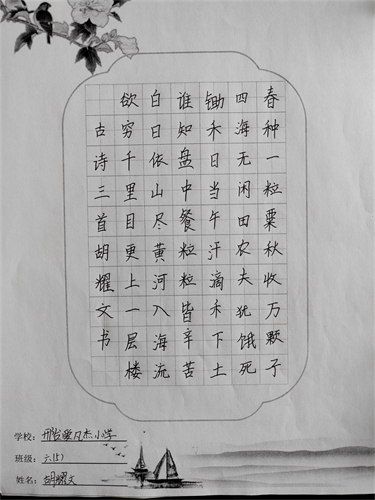 春种一粒粟秋收万颗子
四海无闲田农夫犹饿死
锄禾日当午汗滴禾下土
谁知盘中餐粒粒皆辛苦
白日依山尽黄河入海流
欲穷千里目更上一层楼
古诗三首胡耀文书
学校：邢台爱凡杰小学
班级：六(5)
姓名：胡耀文